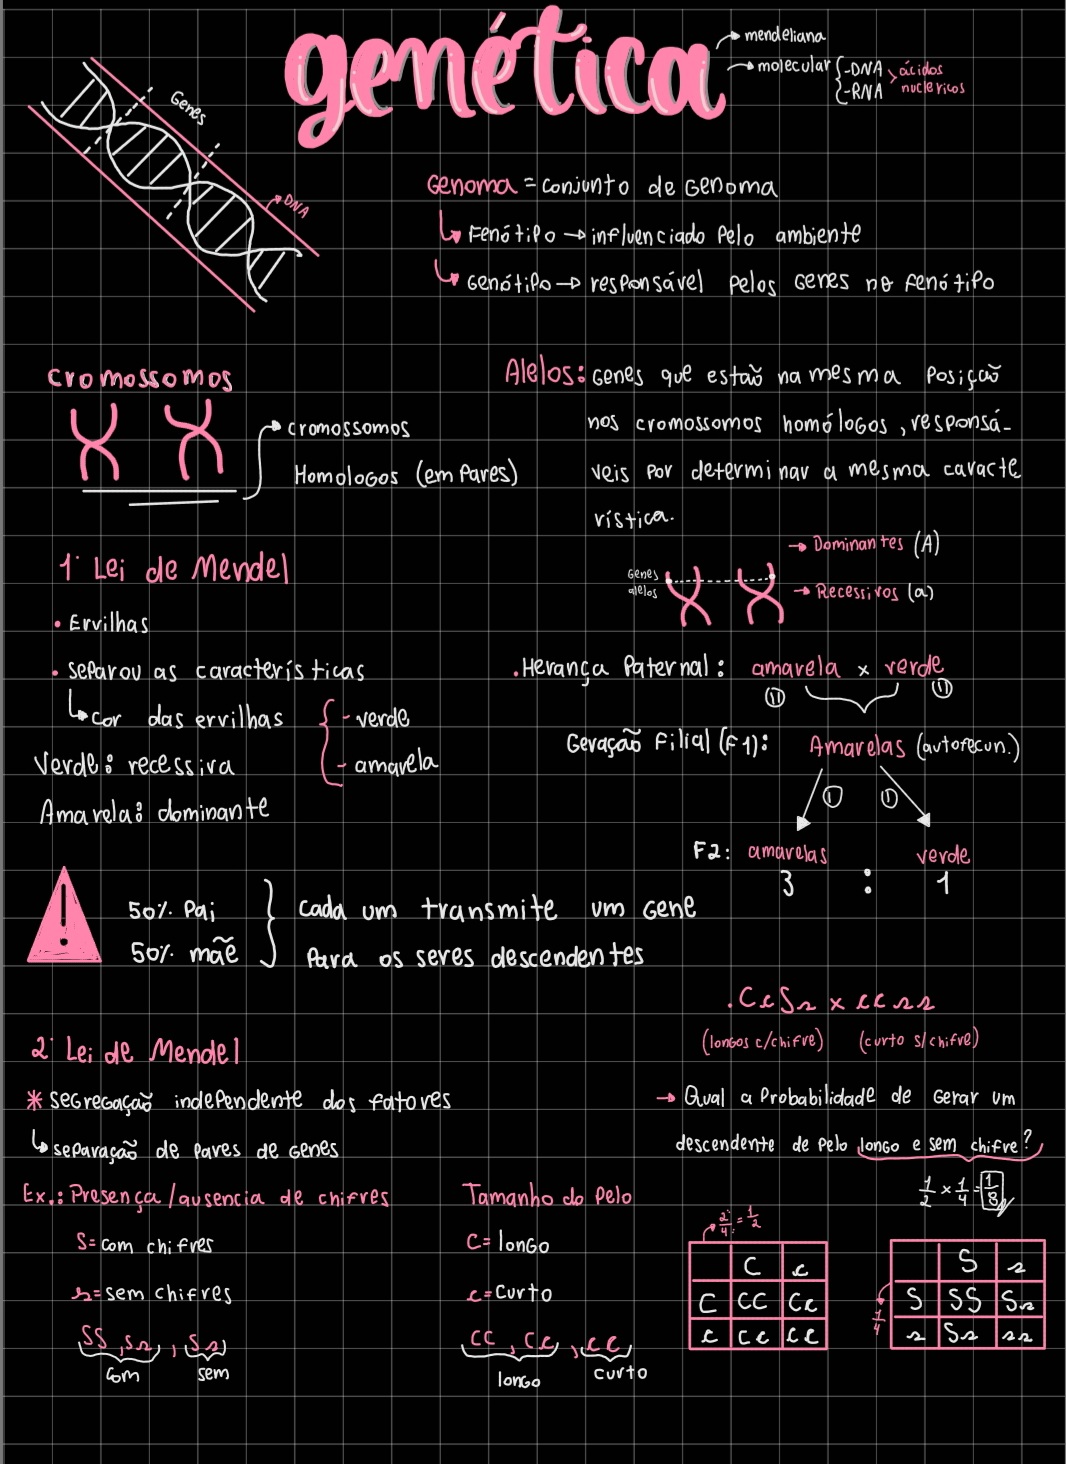 genética
mendeliana
molecular -DNA ácidos
-RNA nuclericos
Genes
DNA
Genoma = conjunto de Genoma
Fenótipo → influenciado pelo ambiente
Genótipo → responsável pelos Genes no fenótipo
cromossomos
cromossomos
Homologos (em pares)
Alelos: Genes que estão na mesma posição
nos cromossomos homólogos, responsá-
veis por determinar a mesma caracte
rística.
→ Dominantes (A)
Genes
alelos
→ Recessivos (a)
1ª Lei de Mendel
• Ervilhas
• separou as características
cor das ervilhas
- verde
- amarela
Verde: recessiva
Amarela: dominante
.Herança Paternal: amarela x verde
Geração Filial (F1): Amarelas (autofecun.)
F2: amarelas verde
3 : 1
50% Pai
50% mãe
cada um transmite um Gene
Para os seres descendentes
2ª Lei de Mendel
* segregação independente dos fatores
separação de pares de genes
Ex.: Presença/ausencia de chifres
S= com chifres
s= sem chifres
SS, Ss, Ss
com sem
Tamanho do pelo
C= longo
c= curto
CC, Cc, cc
longo curto
.CcSs x ccss
(longos c/chifre) (curto s/chifre)
→ Qual a Probabilidade de Gerar um
descendente de pelo longo e sem chifre?
1/2 x 1/4 = 1/8
2/4 = 1/2
C c
C CC Cc
c cc cc
1/4
S s
S SS Ss
s Ss ss